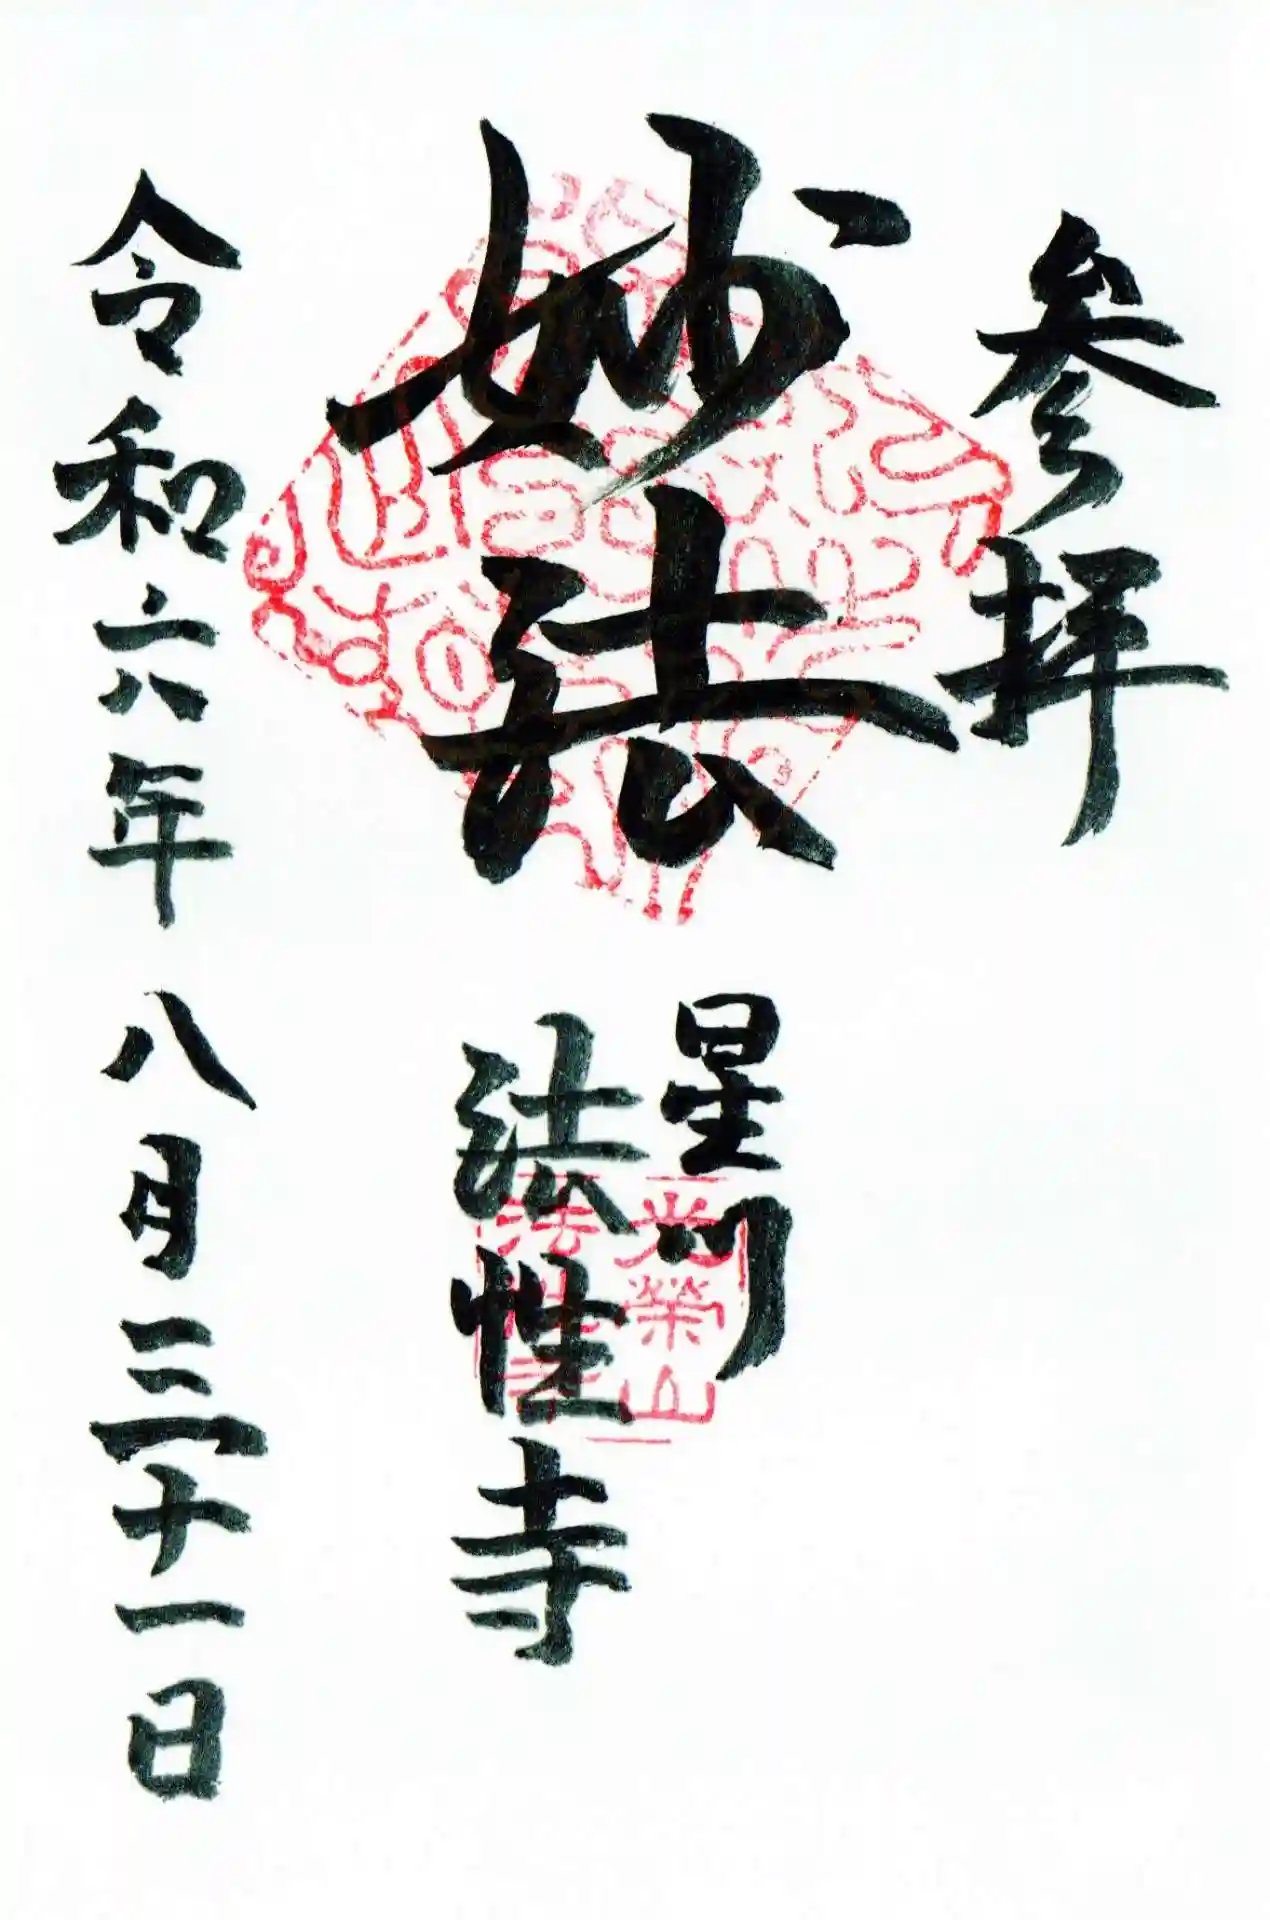 参拝
妙法
星川
法性寺
光榮山
法性寺
令和六年八月三十一日